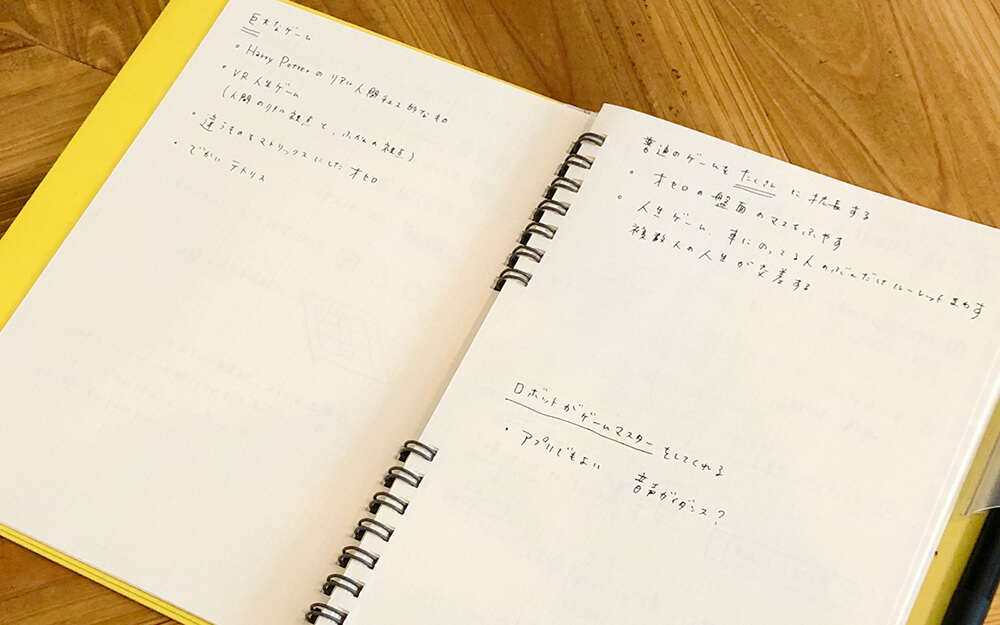 巨大なゲーム
• Harry Potterの リアル人間チェス 的なもの
• VR 人生ゲーム
(人間のリアル視点と、ふかんの視点)
• 違うものをマトリックスにした オセロ
• でかい テトリス
普通のゲームを たくさん に拡長する
• オセロの盤面のマスをふやす
• 人生ゲーム、車にのってる人のぶんだけ ルーレットまわす
複数人の人生が交差する
ロボットがゲームマスターをしてくれる
• アプリでもよい
音声ガイダンス?